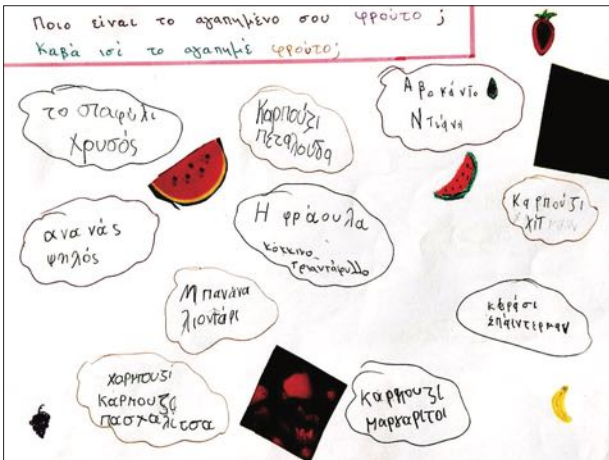 Ποιο είναι το αγαπημένο σου φρούτο ;
Καβά ισί το αγαπημέ φρούτο;
το σταφύλι
χρυσός
Καρπούζι
πεταλούδα
Αβοκάντο
Ντιάνα
Καρπούζι
ανανάς
ψηλός
Η φράουλα
κόκκινο
τριαντάφυλλο
Μπανάνα
λιοντάρι
κεράσι
σπάιντερμαν
χαρπουζί
καρπουζι
πασχαλίτσα
καρπουζι
μαργαριτοι